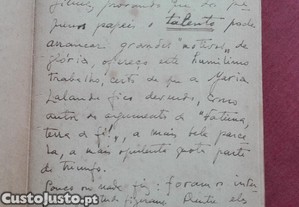 provando que
quenos papeis o talento pode
arrancar grandes "motivos" de
glória, ofereço este humilimo
trabalho, certo de que a Maria
Lalande fico devendo, como
autor do argumento de "Fátima,
terra de fé", a mais bela parce
la, a mais opulenta parte
do triunfo.
Pouco ou nada fiz: foram os inter
CustoJusto.pt